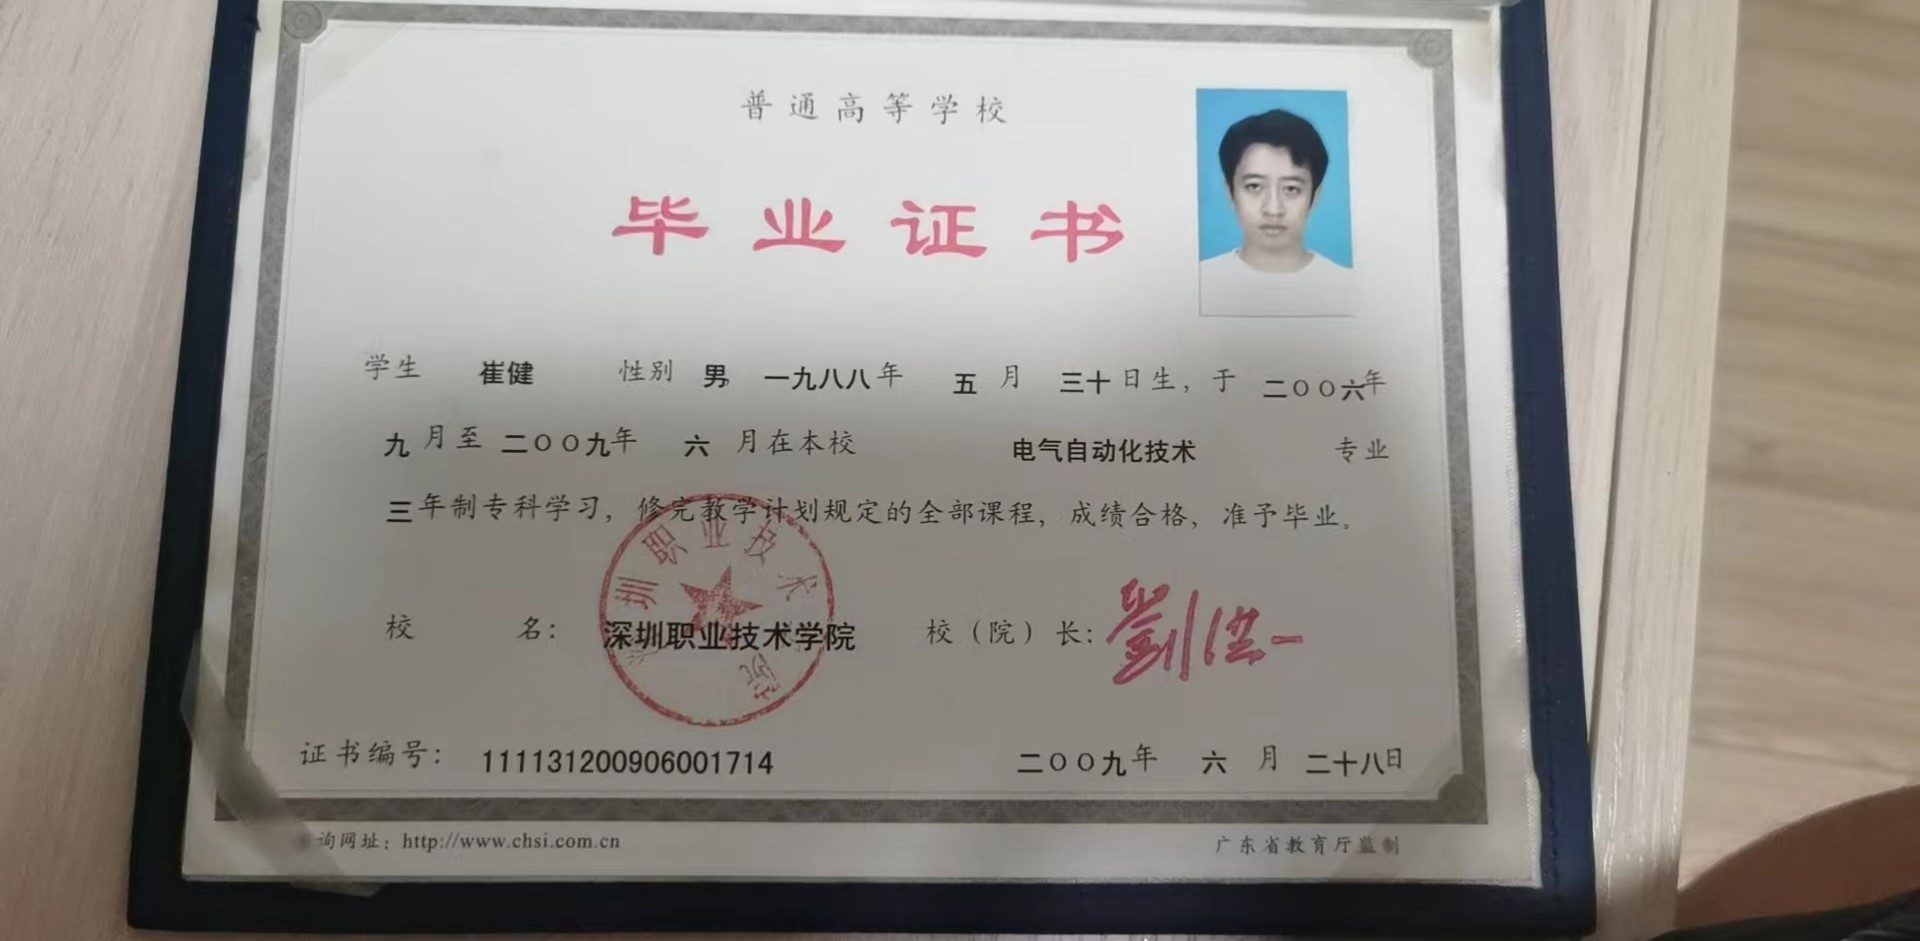 普通高等学校
毕业证书
学生 崔健 性别 男, 一九八八年 五月 三十日生，于 二〇〇六年
九月至 二〇〇九年 六月在本校 电气自动化技术 专业
三年制专科学习，修完教学计划规定的全部课程，成绩合格，准予毕业。
圳职业技术 院
校 名： 深圳职业技术学院 校（院）长：劉洪一
证书编号： 111131200906001714 二〇〇九年 六月 二十八日
询网址：http://www.chsi.com.cn 广东省教育厅监制